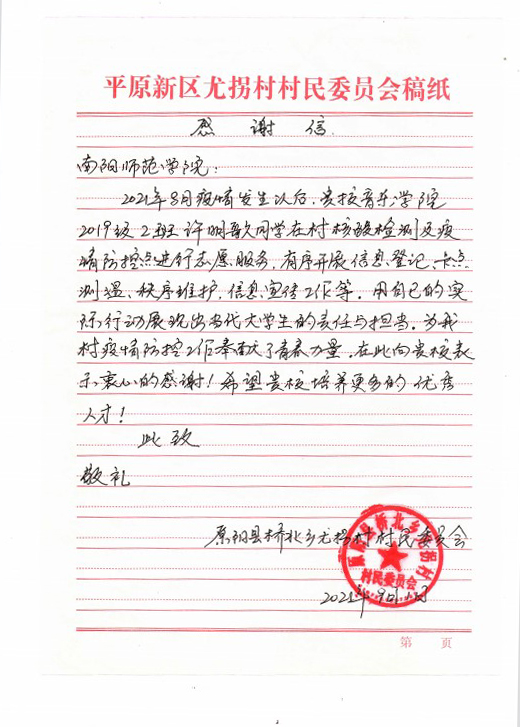 平原新区尤拐村村民委员会稿纸
感谢信
南阳师范学院:
2021年8月疫情发生以后,贵校音乐学院
2019级2班许明歌同学在村核酸检测及疫
情防控点进行志愿服务,有序开展信息登记、卡点
测温、秩序维护、信息宣传工作等。用自己的实
际行动展现出当代大学生的责任与担当。为我
村疫情防控工作奉献了青春力量,在此向贵校表
示衷心的感谢!希望贵校培养更多的优秀
人才!
此致
敬礼
原阳县桥北乡尤拐村村民委员会
原阳县桥北乡尤拐村
村民委员会
2021年9月1日
第 页